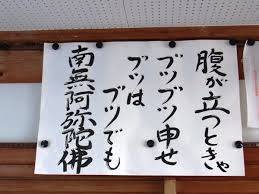 腹が立つときゃ
ブツブツ申せ
ブツは
ブツでも
南無阿弥陀佛